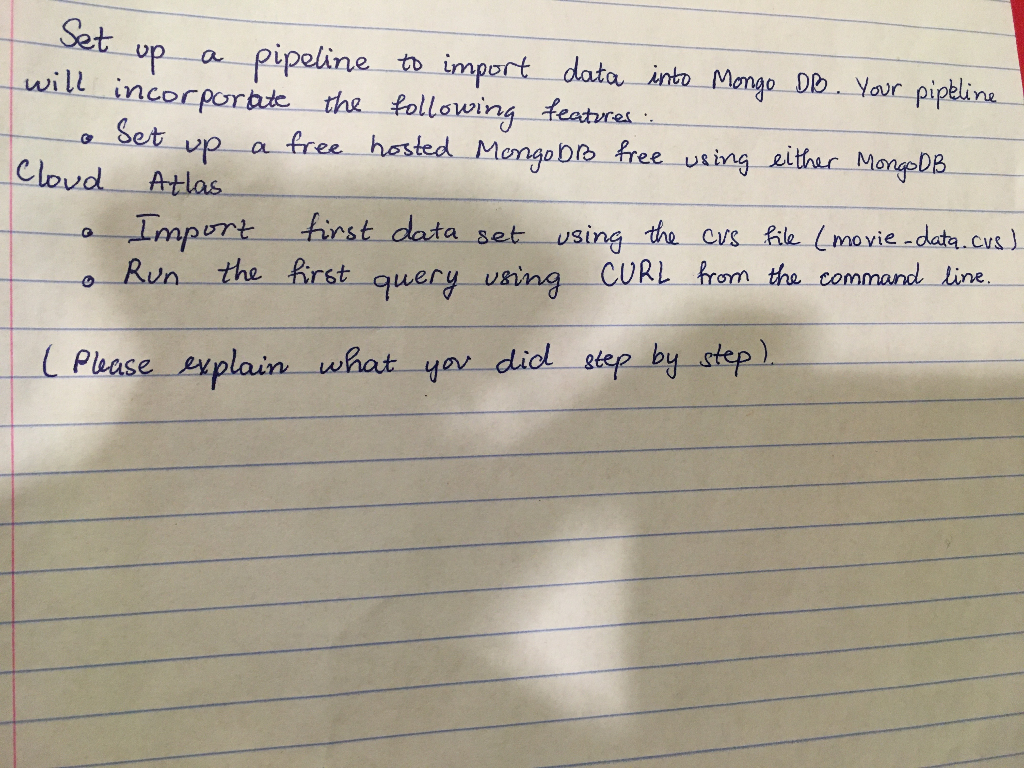 Set up a pipeline to import data into Mongo DB. Your pipeline
will incorportate the following features:.
• Set up a free hosted MongoDB free using either MongoDB
Cloud Atlas
• Import first data set using the cvs file (movie-data.cvs)
• Run the first query using CURL from the command line.
(Please explain what you did step by step).